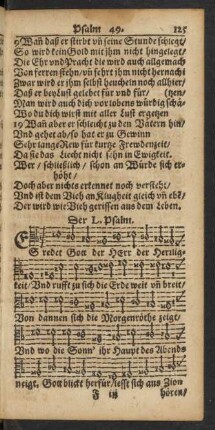 Psalm 49. 125
9 Wañ daß er stirbt vñ seine Stunde schlegt/
So wird kein Gold mit ihm nicht hingelegt/
Die Ehr vnd Pracht die wird auch allgemach
Von ferren stehn/ vñ fehrt ihm nicht hernach:
Zwar wird er ihm selbst heucheln noch allhier/
Daß er der Lust gelebet für vnd für/ (tzen
Man wird auch dich vor lobens würdig schä-
Wo du dich wirst mit aller Lust ergetzen
10 Wañ aber er schleicht zu den Vätern hin/
Vnd gehet ab/ so hat er zu Gewinn
Sehr lange Rew für kurtze Frewdenzeit/
Da sie das Liecht nicht sehn in Ewigkeit.
Wer/ schließlich/ schon an Würde sich er-
höht/
Doch aber nichts erkennet noch versteht/
Vnd ist dem Vieh an Klugheit gleich vñ ebē/
Der wird wie Vieh gerissen aus dem Leben.
Der L. Psalm.
ES redet Gott der HErr der Herrlig-
keit/ Vnd rufft zu sich die Erde weit vñ breit/
Von dannen sich die Morgenröthe zeigt/
Vnd wo die Sonn' ihr Haupt des Abends
neigt. Gott blickt herfür/ lesst sich aus Zion
F iij hören/